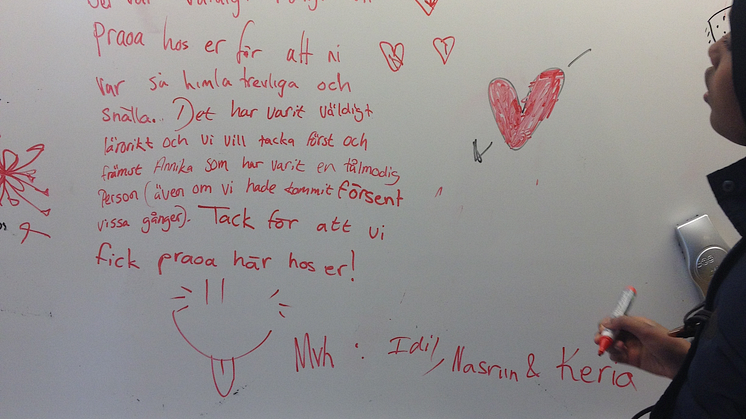 var väldigt
praoa hos er för att ni
var så himla trevliga och
snälla.. Det har varit väldigt
lärorikt och vi vill tacka först och
främst Annika som har varit en tålmodig
Person (även om vi hade kommit försent
vissa gånger). Tack för att vi
fick praoa här hos er!
Mvh : Idil, Nasriin & Keria